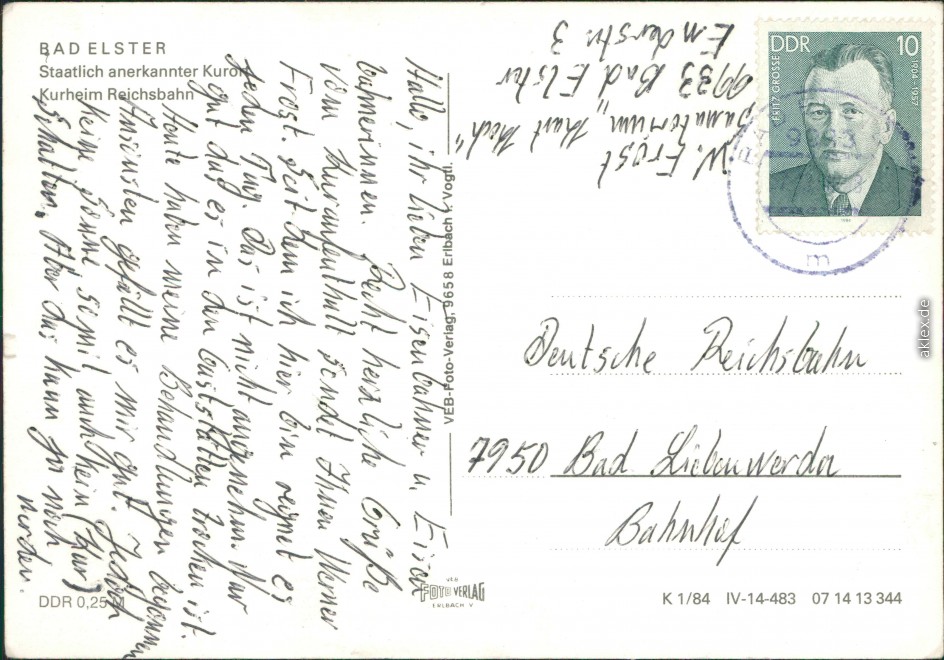 BAD ELSTER
Staatlich anerkannter Kurort
Kurheim Reichsbahn
Hallo, ihr lieben Eisenbahner u. Eisen
bahnerinnen. Recht herzliche Grüße
vom Kuraufenthalt sendet Ihnen Werner
Frost. Seit dem ich hier bin regnet es
jeden Tag. Das ist nicht angenehm. Nur
gut daß es in den Gaststätten trocken ist.
Heute haben meine Behandlungen begonnen
Ansonsten gefällt es mir gut. Jedoch
keine Sonne somit auch kein (Kur)
schatten. Aber das kann ja noch
werden.
DDR 0,25 M
VEB-Foto-Verlag, 9658 Erlbach i. Vogtl.
VEB
FOTO VERLAG
ERLBACH V
W. Frost
Sanatorium "
9933 Bad Elster
Enderstr. 3
DDR 10
FRITZ GROSSE
1904-1957
BAD
m
Deutsche Reichsbahn
7950 Bad Liebenwerda
Bahnhof
K 1/84 IV-14-483 07 14 13 344
aklex.de